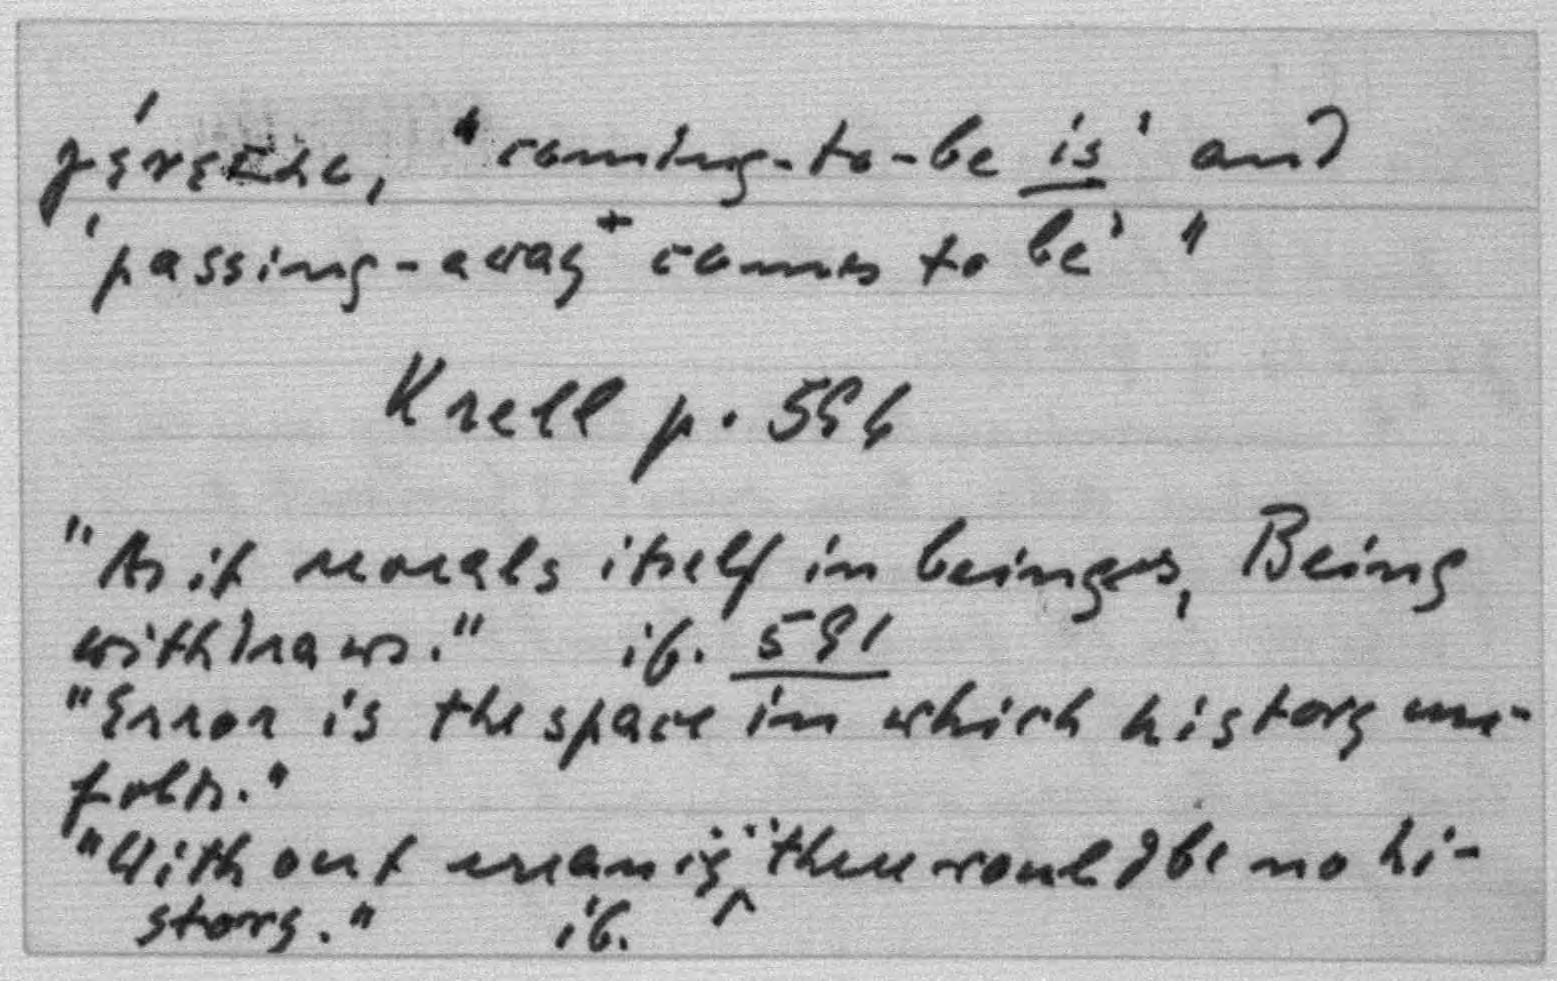 γένεσις, "coming-to-be is' and
'passing-away+ comes to be' "
Krell p. 596
"As it reveals itself in beings, Being
withdraws." ib. 591
"Error is the space in which history un-
folds."
"Without errancy ... there would be no hi-
story." ib.